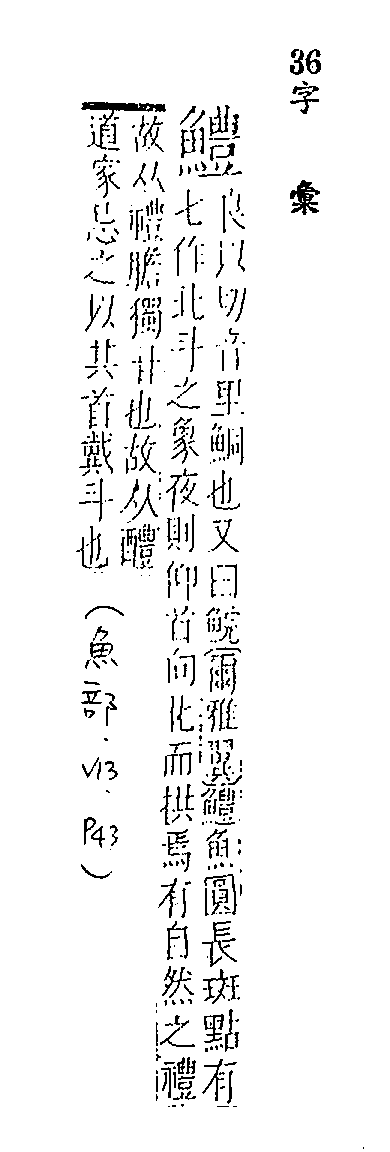 36字彙
鱧良以切音里鮦也又曰鯇爾雅翼鱧魚圓長斑點有
七作北斗之象夜則仰首向北而拱焉有自然之禮
故从禮膽獨甘也故从醴
道家忌之以其首戴斗也(魚部.V13.P43)